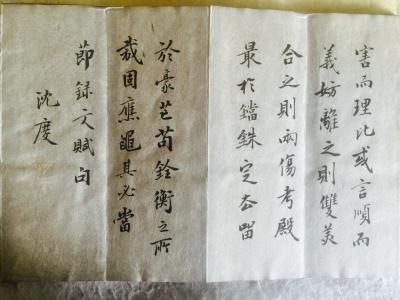 害而理比或言順而
義妨離之則雙美
合之則兩傷考殿
最於錙銖定去留
於豪芒苟銓衡之所
裁固應繩其必當
節錄文賦句
沈度